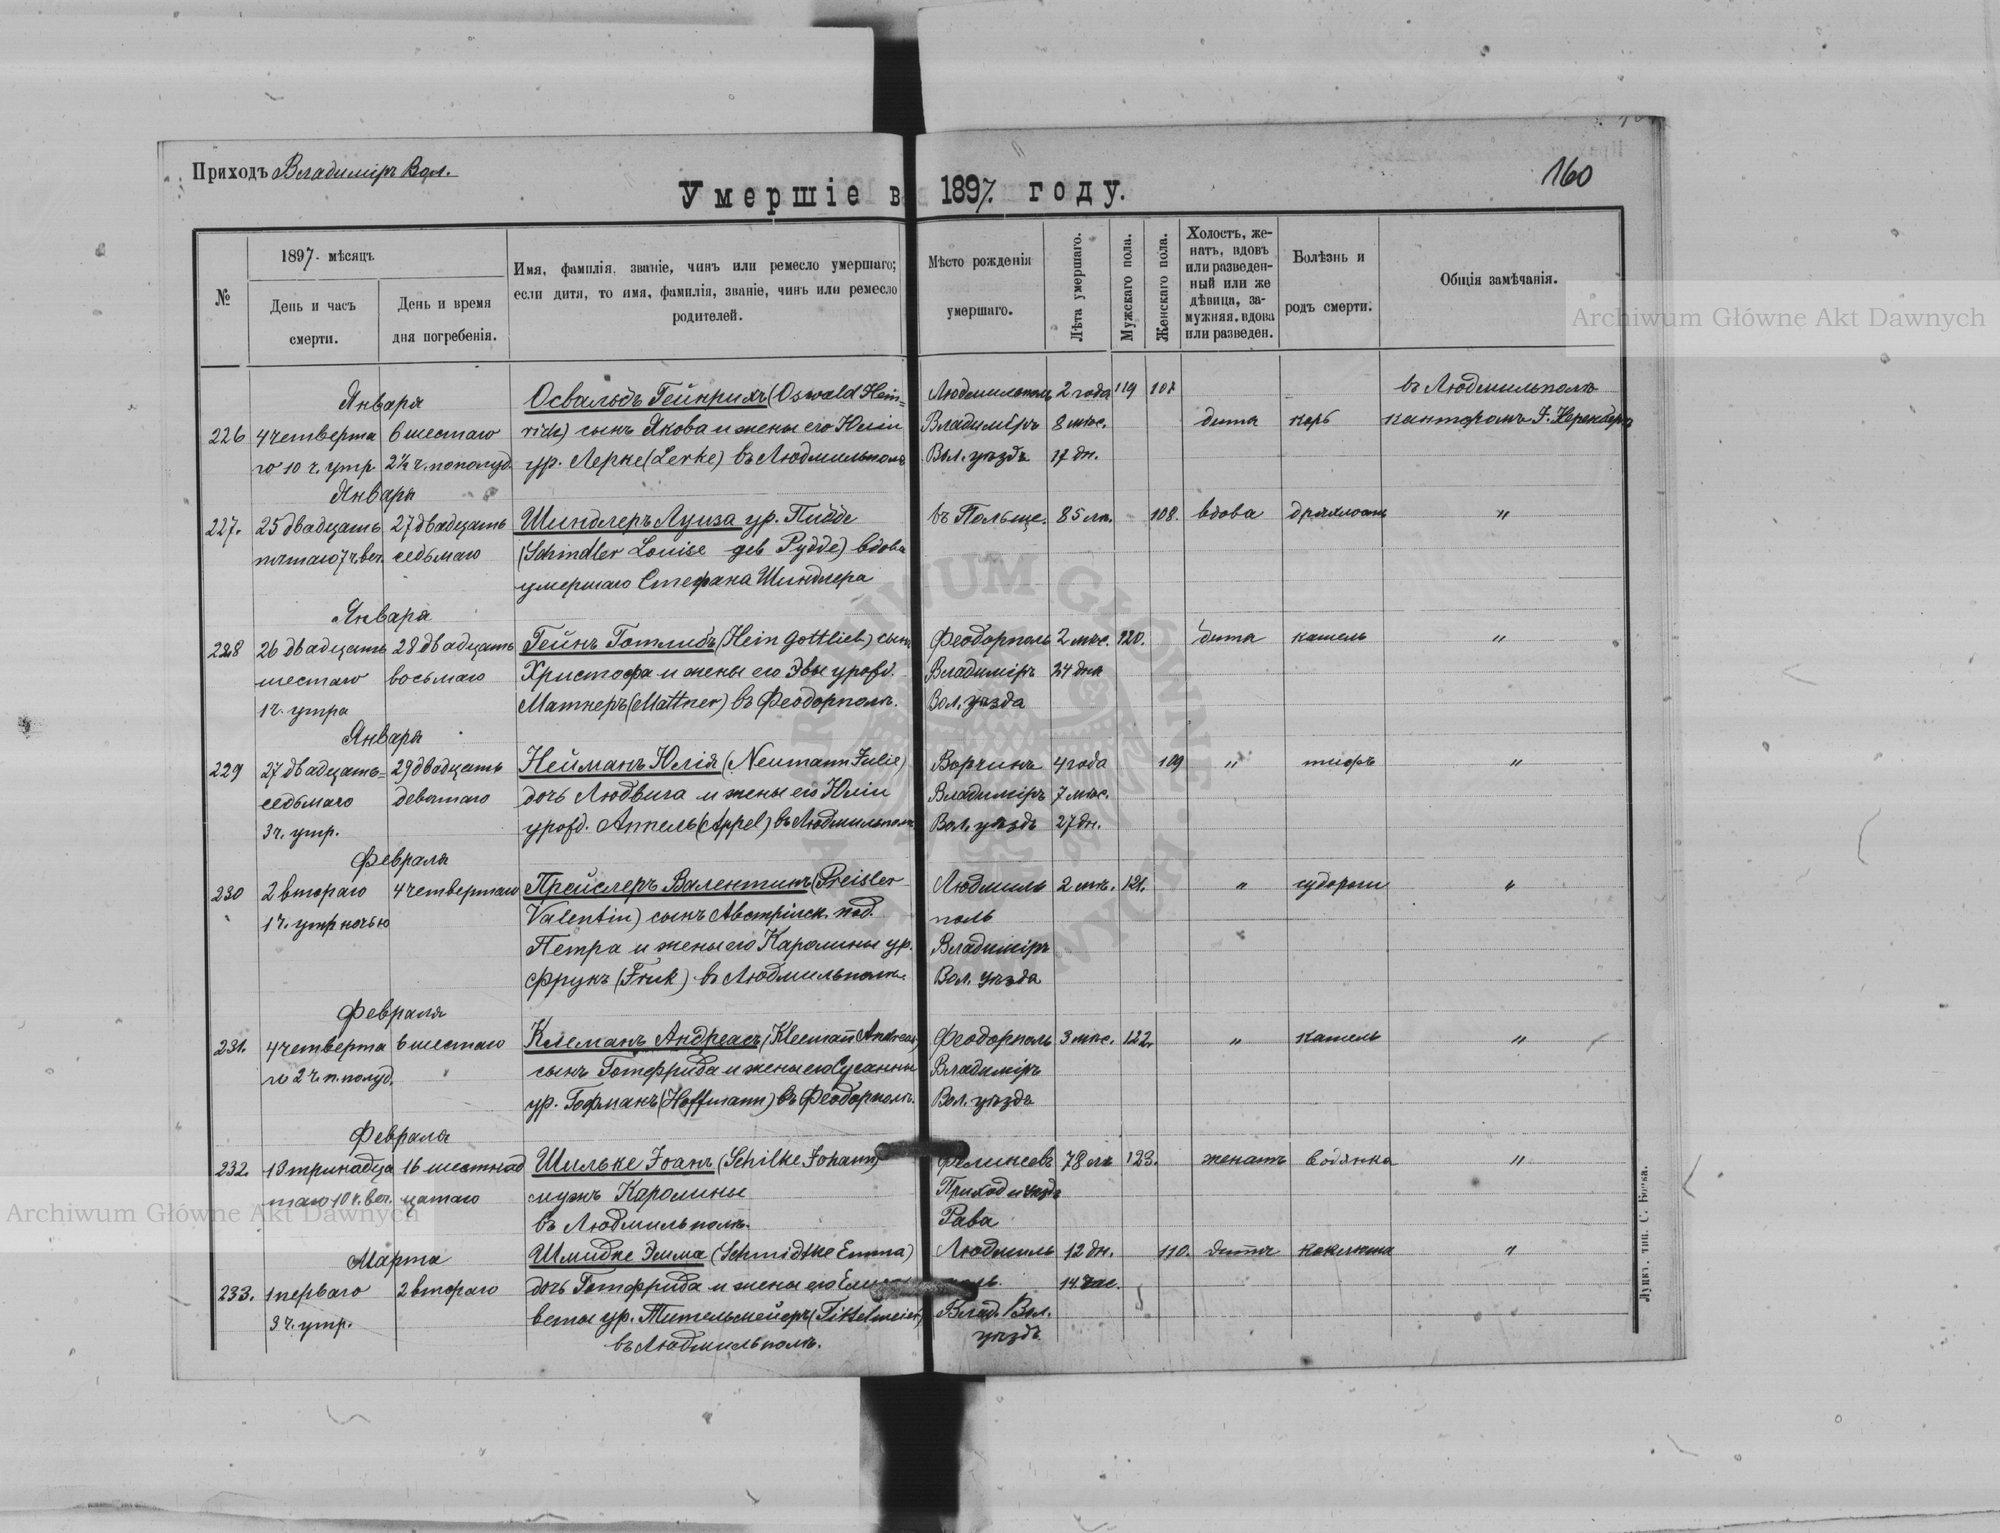 Приходъ Владиміръ Вол.
160
Умершіе въ 1897. году.
№
1897. мѣсяцъ
День и часъ смерти.
День и время дня погребенія.
Имя, фамилія, званіе, чинъ или ремесло умершаго;
если дитя, то имя, фамилія, званіе, чинъ или ремесло
родителей.
Мѣсто рожденія
умершаго.
Лѣта умершаго.
Мужскаго пола.
Женскаго пола.
Холостъ, же-
натъ, вдовъ
или разведен-
ный или же
дѣвица, за-
мужняя, вдова
или разведен.
Болѣзнь и
родъ смерти.
Общія замѣчанія.
Января Освальдъ Гейнрихъ (Oswald Hein= Людмильполь 2 года 119 107 въ Людмильполѣ
226 4 четверта 6 шестаго rich) сынъ Якова и жены его Юліи Владиміръ 8 мѣс. дитя корь канторомъ
го 10 ч. утр. 2½ ч. пополуд. ур. Лерке (Lerke) въ Людмильполѣ Вол. уѣздъ 17 дн.
Января
227. 25 двадцать 27 двадцать Шиндлеръ Луиза ур. Пидде въ Польше. 85 лѣт. 108. вдова дряхлость "
пятаго 7 ч. веч. седьмаго (Schindler Louise geb Рудде) вдова
умершаго Стефана Шиндлера
Января
228 26 двадцать 28 двадцать Гейнъ Готлибъ (Hein Gottlieb) сынъ Феодорполь 2 мѣс. 120. дитя кашель "
шестаго восьмаго Христофа и жены его Эвы урожд. Владиміръ 24 дня
1 ч. утра Матнеръ (Mattner) въ Феодорполѣ. Вол. уѣзда
Января
229 27 двадцать= 29 двадцать Нейманъ Юлія (Neumann Julie) Ворчинъ 4 года 109 " тифъ "
седьмаго девятаго дочь Людвига и жены его Юліи Владиміръ 7 мѣс.
3 ч. утр. урожд. Аппель (Appel) въ Людмильполѣ Вол. уѣздъ 27 дн.
Февраля
230 2 втораго 4 четвертаго Прейслеръ Валентинъ (Preisler Людмиль 2 мѣс. 121. " судороги "
1 ч. утр ночью Valentin) сынъ Австрійск. под. поль
Петра и жены его Каролины ур. Владиміръ
Фрукъ (Fruk) въ Людмильполѣ. Вол. уѣзда
Февраля
231. 4 четверта 6 шестаго Клеманъ Андреасъ (Kleemann Andreas) Феодорполь 3 мѣс. 122. " кашель "
го 2 ч. п. полуд. сынъ Готфрида и жены его Сусанны Владиміръ
ур. Гофманъ (Hoffmann) въ Феодорполѣ. Вол. уѣздъ
Февраля
232. 13 тринадца 16 шестнад Шильке Іоанъ (Schilke Johann) 78 лѣт 123. женатъ водянка "
таго 10 ч. веч. цатаго мужъ Каролины Приход и уѣздъ
въ Людмильполѣ. Рава
Марта Шмидке Эмма (Schmidtke Emma) Людмиль 12 дн. 110. дитя коклюшъ "
233. 1 перваго 2 втораго дочь Готфрида и жены его поль. 14 час.
3 ч. утр. веты ур. Тительмейеръ (Tittelmeier) Влад. Вол.
въ Людмильполѣ. уѣздъ
Луцкъ. тип. С. Бонка.
Archiwum Główne Akt Dawnych
Archiwum Główne Akt Dawnych